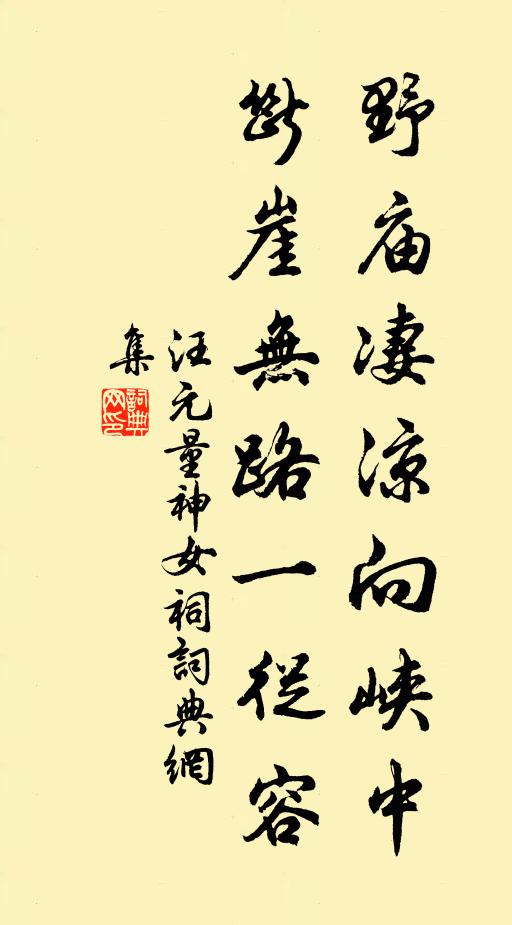 野庙淒涼向峽中
斷崖無路一從容
汪元量神女祠詞典網
集
詞典
网印